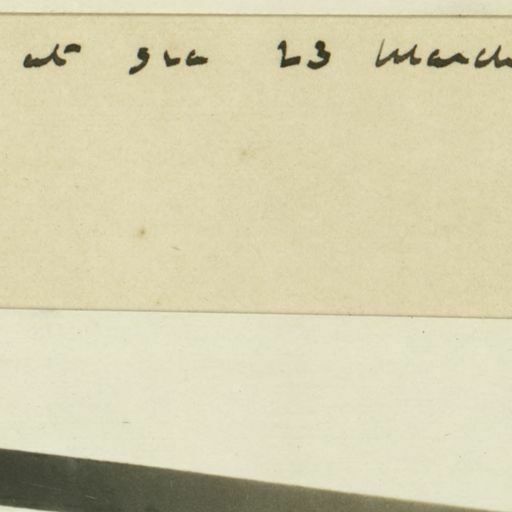 at sea 23 March